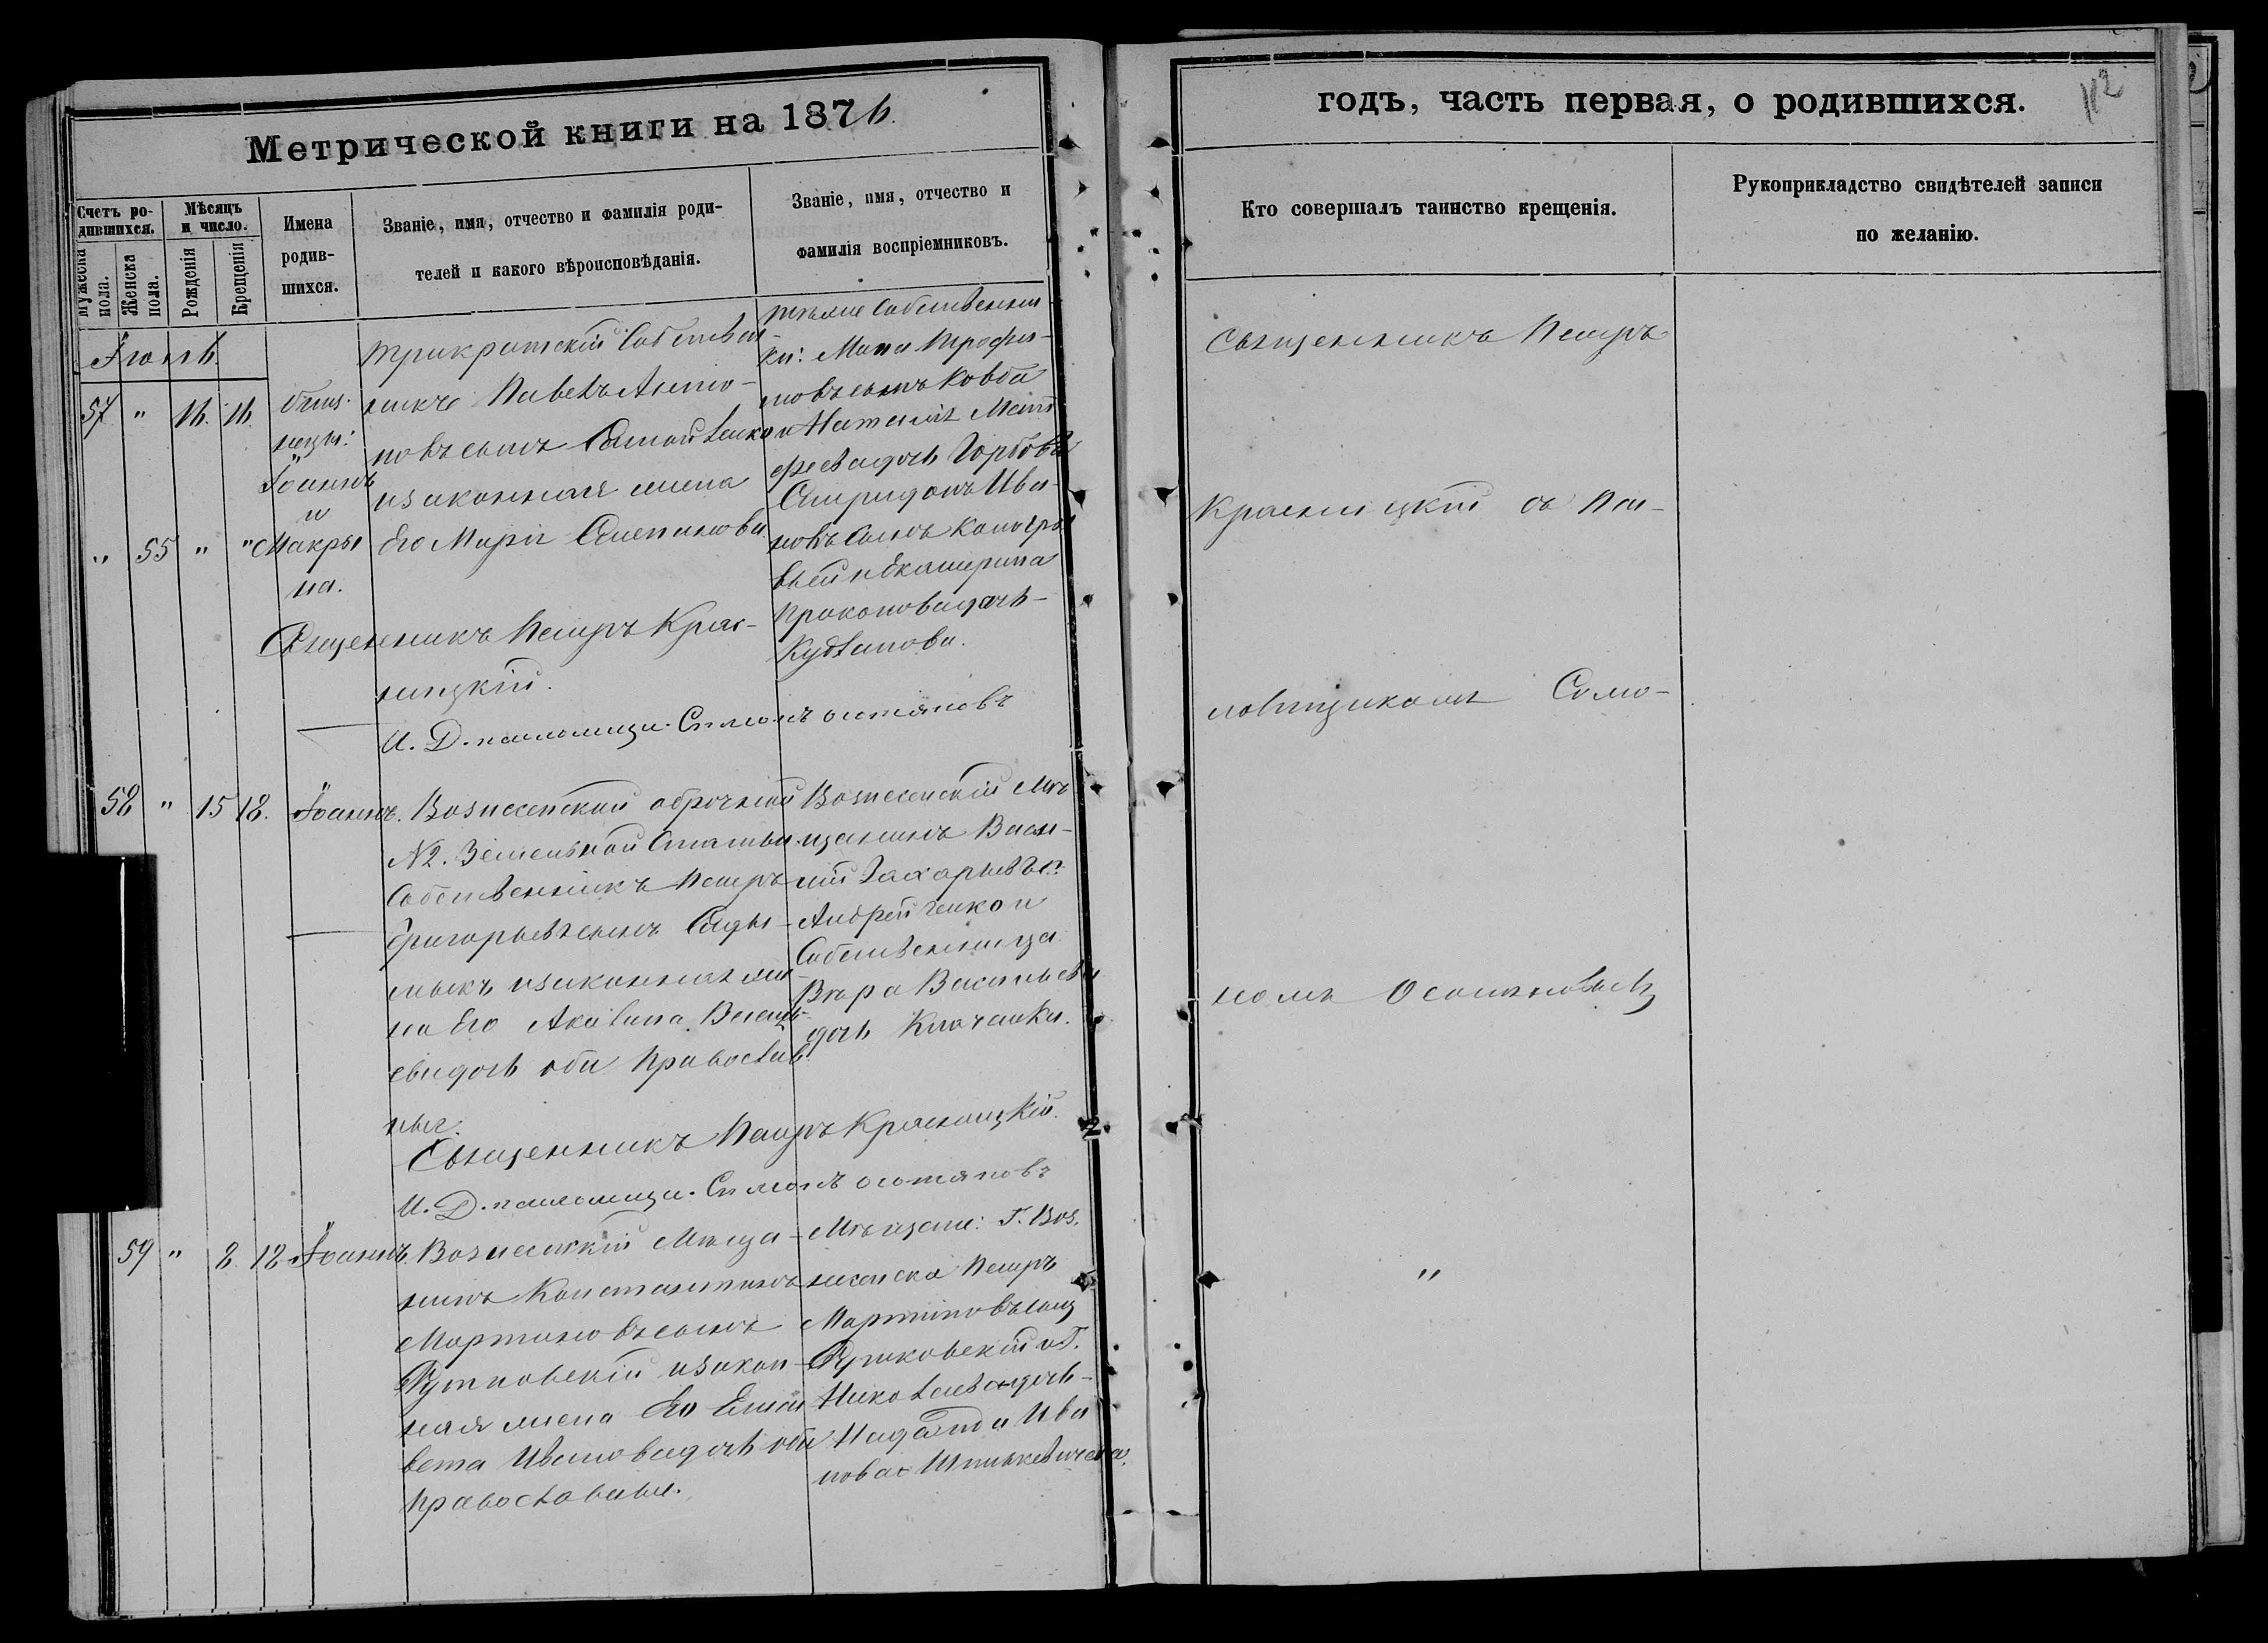 Метрической книги на 1876.
годъ, часть первая, о родившихся.
112
Счетъ ро-
дившихся.
Мужеска
пола.
Женска
пола.
Мѣсяцъ
и число.
Рожденія
Крещенія
Имена
родив-
шихся.
Званіе, имя, отчество и фамилія роди-
телей и какого вѣроисповѣданія.
Званіе, имя, отчество и
фамилія воспріемниковъ.
Кто совершалъ таинство крещенія.
Рукоприкладство свидѣтелей записи
по желанію.
Іюль
57 " 16. 16.
близ-
нецы:
Іоаннъ
и
" 55 " " Макри
на.
Трикратскій собствен-
никъ Павелъ Анто-
новъ сынъ Самойленко
и законная жена
Его Марія Степанова
тѣ же собственни-
ки: Мина Трофи-
мовъ сынъ Ковба
и Наталія Мат
феева дочь Горбова
Спиридонъ Ива-
новъ сынъ
и Екатерина
Прокопова дочь
Священникъ Петръ Крас-
ницкій.
И. Д. псаломщи. Симонъ Остяновъ
58 " 15 18. Іоаннъ.
Вознесенскій оброчной
№2. Земельной Статьи
Собственникъ Петръ
Григорьевъ сынъ Сады-
мыкъ и законная же-
на Его Акилина
ева дочь оба Православ
ные.
Вознесенскій Мѣ
щанинъ Васи-
лій Захарьевъ с.
Андрейченко и
Собственница
Вѣра Васильева
дочь Клоченки.
Священникъ Петръ Красницкій.
И. Д. псаломщи. Симонъ Остяновъ
59 " 8 18 Іоаннъ.
Вознесенскій Мѣща-
нинъ Константинъ
Мартиновъ сынъ
Рутковскій и закон-
ная жена Его Елиса
вета Иванова дочь оба
православные.
Мѣщане: Г. Воз.
несенска Петръ
Мартиновъ сынъ
Рутковскій и Г.
Николаева дочь
Ива
нова Шпинкевичева.
Священникъ Петръ
Красницкій съ Пса-
ломщикомъ Симо-
номъ Остяновымъ
"